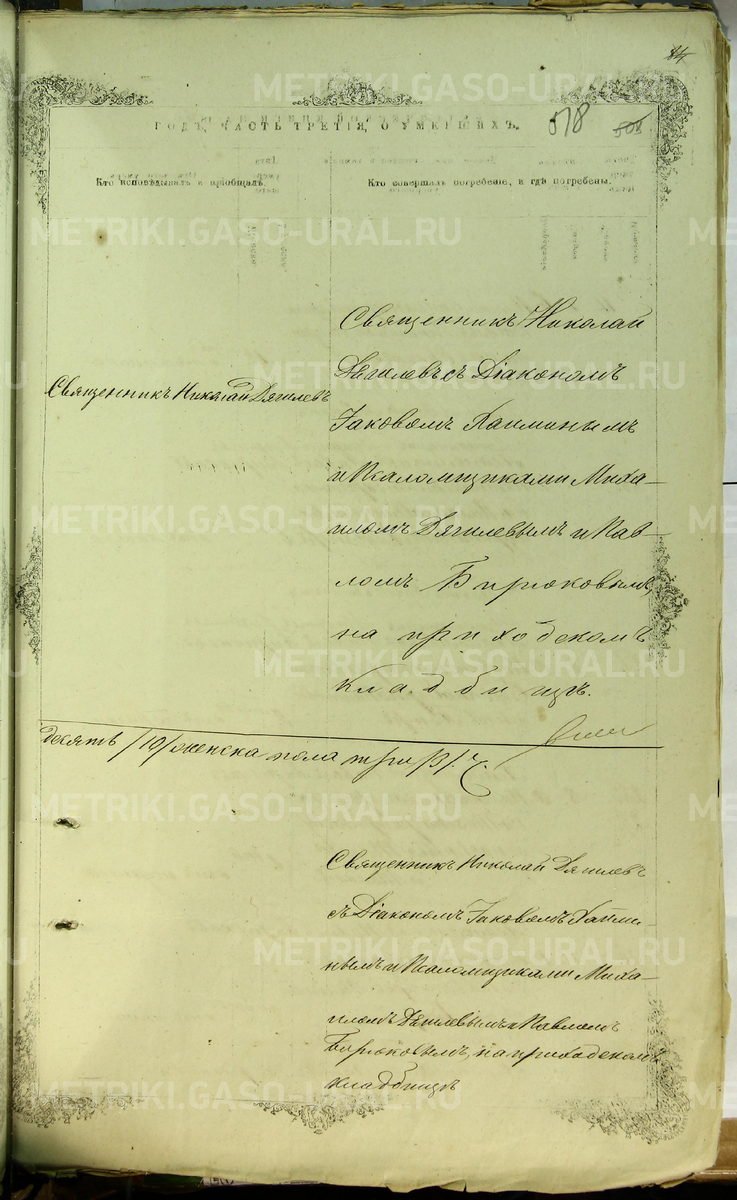 84
ГОДЪ, ЧАСТЬ ТРЕТІЯ, О УМЕРШИХЪ.
578 508
Кто исповѣдывалъ и пріобщалъ.
Кто совершалъ погребеніе, и гдѣ погребены.
Священникъ Николай Дягилевъ
Священникъ Николай
Дягилевъ съ Діакономъ
Іаковомъ Хаиминымъ
и Псаломщиками Миха-
иломъ Дягилевымъ и Пав-
ломъ Бирюковымъ,
на приходскомъ
кладбищѣ.
десять /10/ женска пола три /3/ ч.
Священникъ Николай Дягилевъ
съ Діакономъ Іаковомъ Хаими-
нымъ и Псаломщиками Миха-
иломъ Дягилевымъ и Павломъ
Бирюковымъ, на приходскомъ
кладбищѣ
METRIKI.GASO-URAL.RU